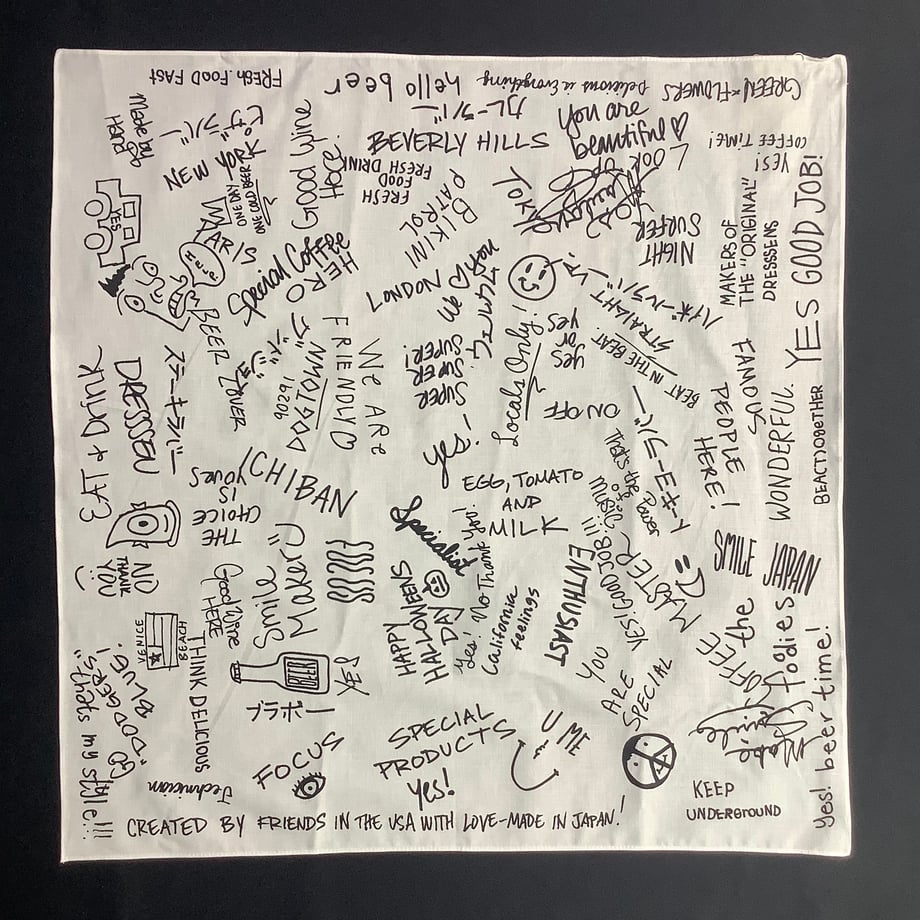 FRESH FOOD FAST
hello beer
Delicious is Everything
GREEN & FLOWERS
Made by
Hand
ピザラバー
NEW YORK
ONE DAY
ONE COLD BEER
Good Wine
Here!
カレーラバー
BEVERLY HILLS
FRESH
FOOD
FRESH DRINK
You are
beautiful
LOOK UP
COFFEE TIME!
YES!
YES GOOD JOB!
YES
PARIS
Here!
Special Coffee
HERO
BIKINI
PATROL
TOKYO
NIGHT
SURFER
MAKERS OF
THE "ORIGINAL"
DRESSSENS
LONDON
We ♡ you
BEER LOVER
EAT & DRINK
DRESSSEN
ステーキラバー
90291
DOGTOWN
FRIENDLY
We ARE
SUPER
SUPER
SUPER!
Locals Only!
yes
or
yes
STRAIGHT
BEAT IN THE BEAT
ハイボールラバー
SO WHAT
PEOPLE
HERE!
WONDERFUL
BEACT)OBETHER
ON OFF
yes!
ICHIBAN
THE
CHOICE
IS
YOURS
EGG, TOMATO
AND
MILK
コーヒーラバー
That's the
music
Power
Specialist
NO
THANK
YOU
Good Wine
HERE
Smile
Maker
HAPPY
HALLOWEENS
DAY
Yes! No Thank You!
California
feelings
ENTHUSIAST
YES! GOOD JOB!!!
MASTER
SMILE JAPAN
YOU
ARE
SPECIAL
COFFEE
the
foodies
VENICE
BEACH
THINK DELICIOUS
GO
"DODGERS"
BLUE!
that's my style!!!
BEER
ブラボー
Technician
FOCUS
SPECIAL
PRODUCTS
yes!
U ME
KEEP
UNDERGROUND
yes! beer time!
CREATED BY FRIENDS IN THE USA WITH LOVE-MADE IN JAPAN!